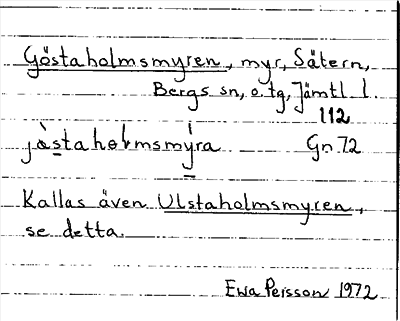 Göstaholmsmyren, myr, Sätern,
Bergs sn, o. tg, Jämtl. l.
112
jòstahoḷmsmýra Gn 72
Kallas även Ulstaholmsmyren,
se detta.
Ewa Persson 1972